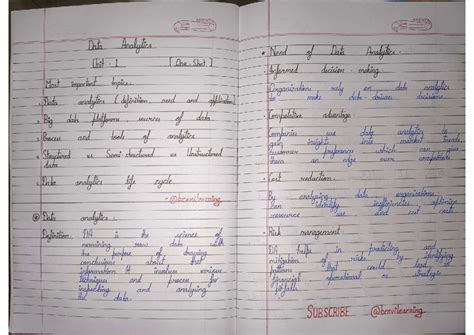 Data Analytics
Unit - 1 [One-Shot]
Most important topics:
Data analytics (definition, need and application)
Big data platform, sources of data.
Process and tools of analytics
Structured vs Semi-structured vs Unstructured
data.
Data analytics life cycle.
-@benvilearning
Data analytics :
Definition: DA is the science of
examining raw data with
the purpose of drawing
conclusions about that
information. It involves various
techniques and process for
inspecting and analysing
the data.
Need of Data Analytics:
Informed decision making
Organizations rely on data analytics
to make data-driven decisions
Competitive advantage:
Companies use data analytics to
gain insight into market trends
customer preferences which can give
them an edge over competitors
Cost reduction:
By analysing data organizations
can identify inefficiencies optimize
resources use and cut costs
Risk management
DA helps in predicting and
mitigation of risks by identifying
patterns that could lead
financial operational or strategic
pitfalls
SUBSCRIBE @benvilearning